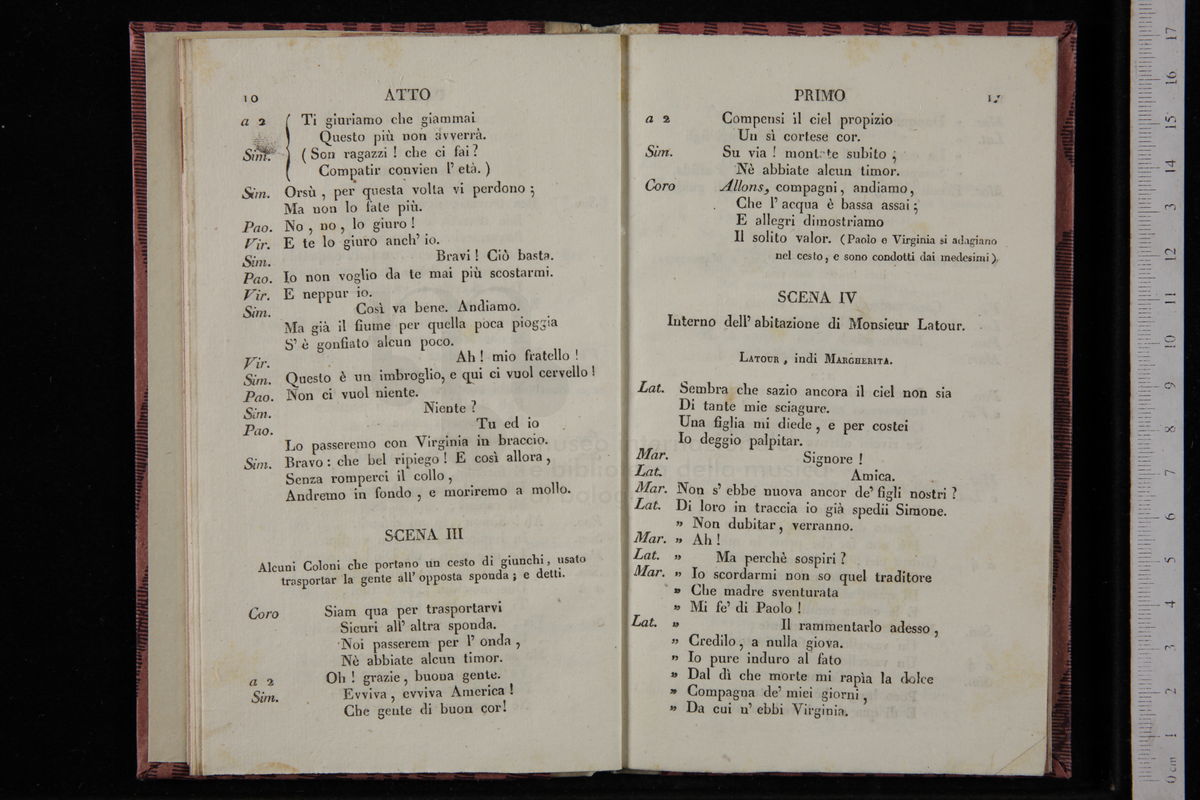 10 ATTO
a 2 Ti giuriamo che giammai
Questo più non avverrà.
Sim. ( Son ragazzi ! che ci fai ?
Compatir convien l' età. )
Sim. Orsù , per questa volta vi perdono ;
Ma non lo fate più.
Pao. No , no , lo giuro !
Vir. E te lo giuro anch' io.
Sim. Bravi ! Ciò basta.
Pao. Io non voglio da te mai più scostarmi.
Vir. E neppur io.
Sim. Così va bene. Andiamo.
Ma già il fiume per quella poca pioggia
S' è gonfiato alcun poco.
Vir. Ah ! mio fratello !
Sim. Questo è un imbroglio, e qui ci vuol cervello !
Pao. Non ci vuol niente.
Sim. Niente ?
Pao. Tu ed io
Lo passeremo con Virginia in braccio.
Sim. Bravo : che bel ripiego ! E così allora ,
Senza romperci il collo ,
Andremo in fondo , e moriremo a mollo.
SCENA III
Alcuni Coloni che portano un cesto di giunchi , usato
trasportar la gente all' opposta sponda ; e detti.
Coro Siam qua per trasportarvi
Sicuri all' altra sponda.
Noi passerem per l' onda ,
Nè abbiate alcun timor.
a 2 Oh ! grazie , buona gente.
Sim. Evviva , evviva America !
Che gente di buon cor !
PRIMO
a 2 Compensi il ciel propizio
Un sì cortese cor.
Sim. Su via ! montate subito ;
Nè abbiate alcun timor.
Coro Allons, compagni , andiamo ,
Che l' acqua è bassa assai ;
E allegri dimostriamo
Il solito valor. (Paolo e Virginia si adagiano
nel cesto , e sono condotti dai medesimi ).
SCENA IV
Interno dell' abitazione di Monsieur Latour.
LATOUR , indi MARGHERITA.
Lat. Sembra che sazio ancora il ciel non sia
Di tante mie sciagure.
Una figlia mi diede , e per costei
Io deggio palpitar.
Mar. Signore !
Lat. Amica.
Mar. Non s' ebbe nuova ancor de' figli nostri ?
Lat. Di loro in traccia io già spedii Simone.
" Non dubitar , verranno.
Mar. " Ah !
Lat. " Ma perchè sospiri ?
Mar. " Io scordarmi non so quel traditore
" Che madre sventurata
" Mi fe' di Paolo !
Lat. " Il rammentarlo adesso ,
" Credilo , a nulla giova.
" Io pure induro al fato
" Dal dì che morte mi rapìa la dolce
" Compagna de' miei giorni ,
" Da cui n' ebbi Virginia.
museo internazionale
e biblioteca della musica
di bologna
0 cm 1 2 3 4 5 6 7 8 9 10 11 12 13 14 15 16 17